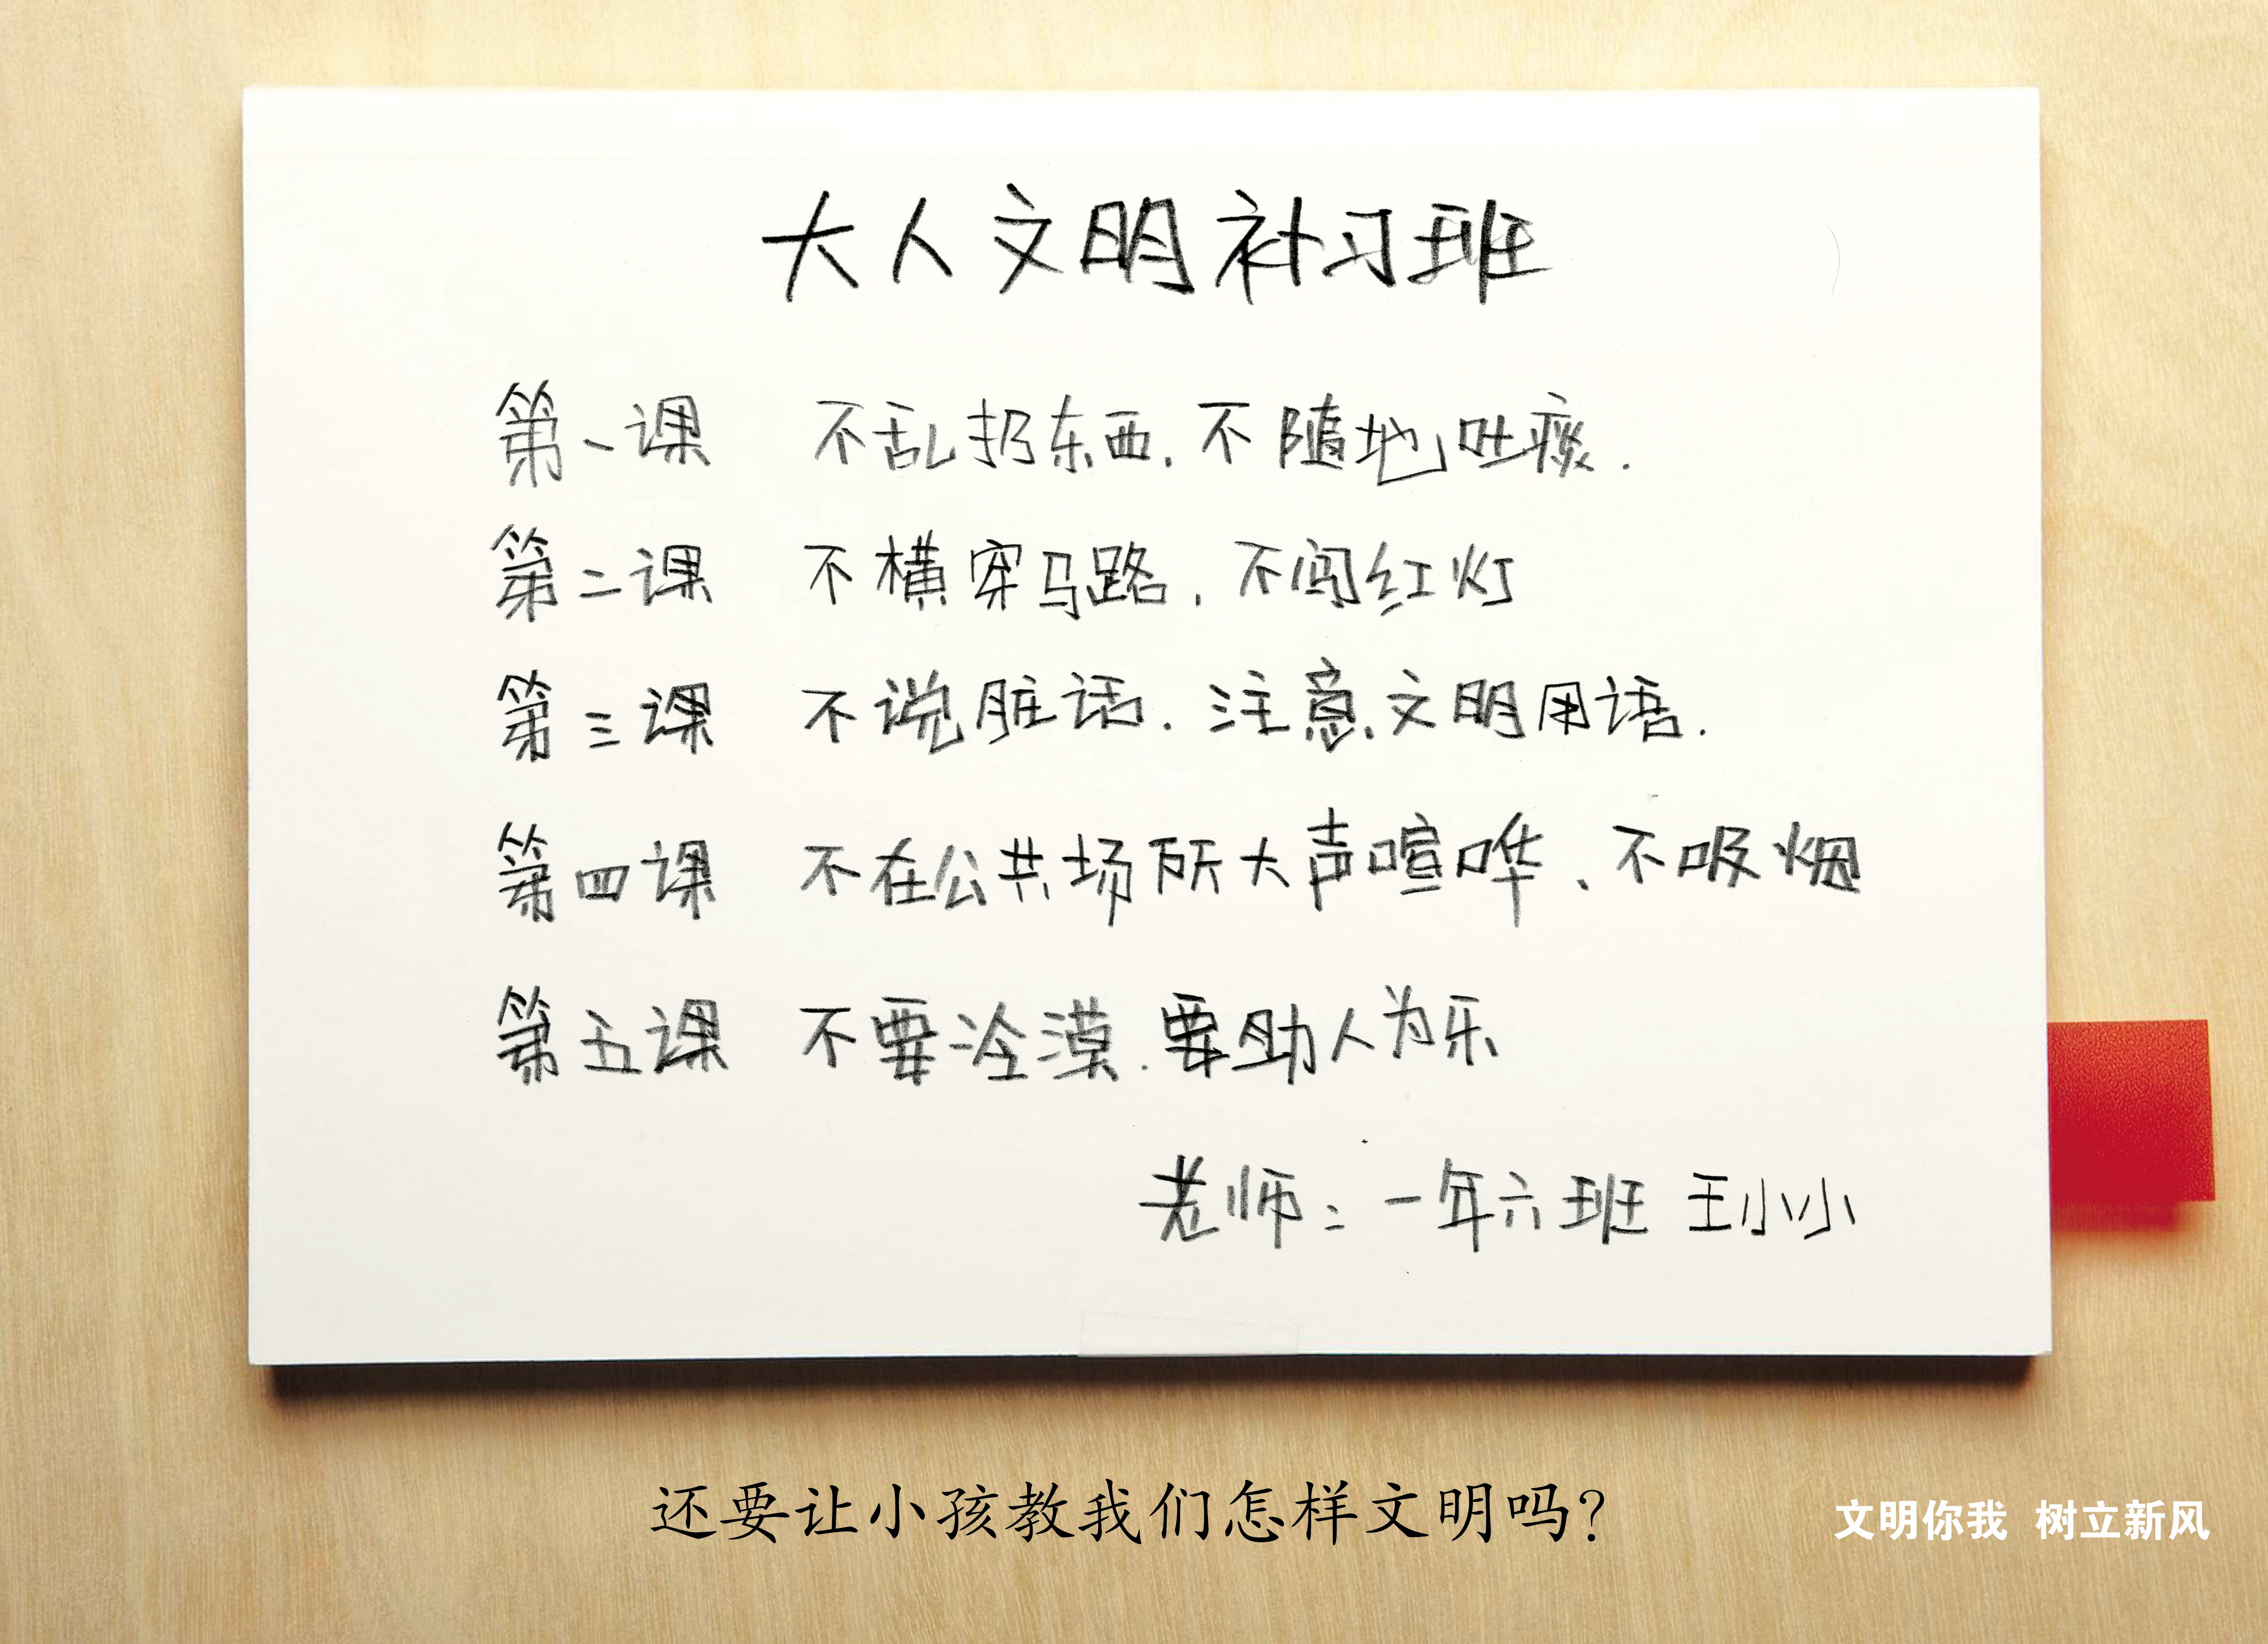 大人文明补习班
第一课 不乱扔东西.不随地吐痰.
第二课 不横穿马路.不闯红灯
第三课 不说脏话.注意文明用语.
第四课 不在公共场所大声喧哗、不吸烟
第五课 不要冷漠.要助人为乐
老师：一年六班 王小小
还要让小孩教我们怎样文明吗？
文明你我 树立新风